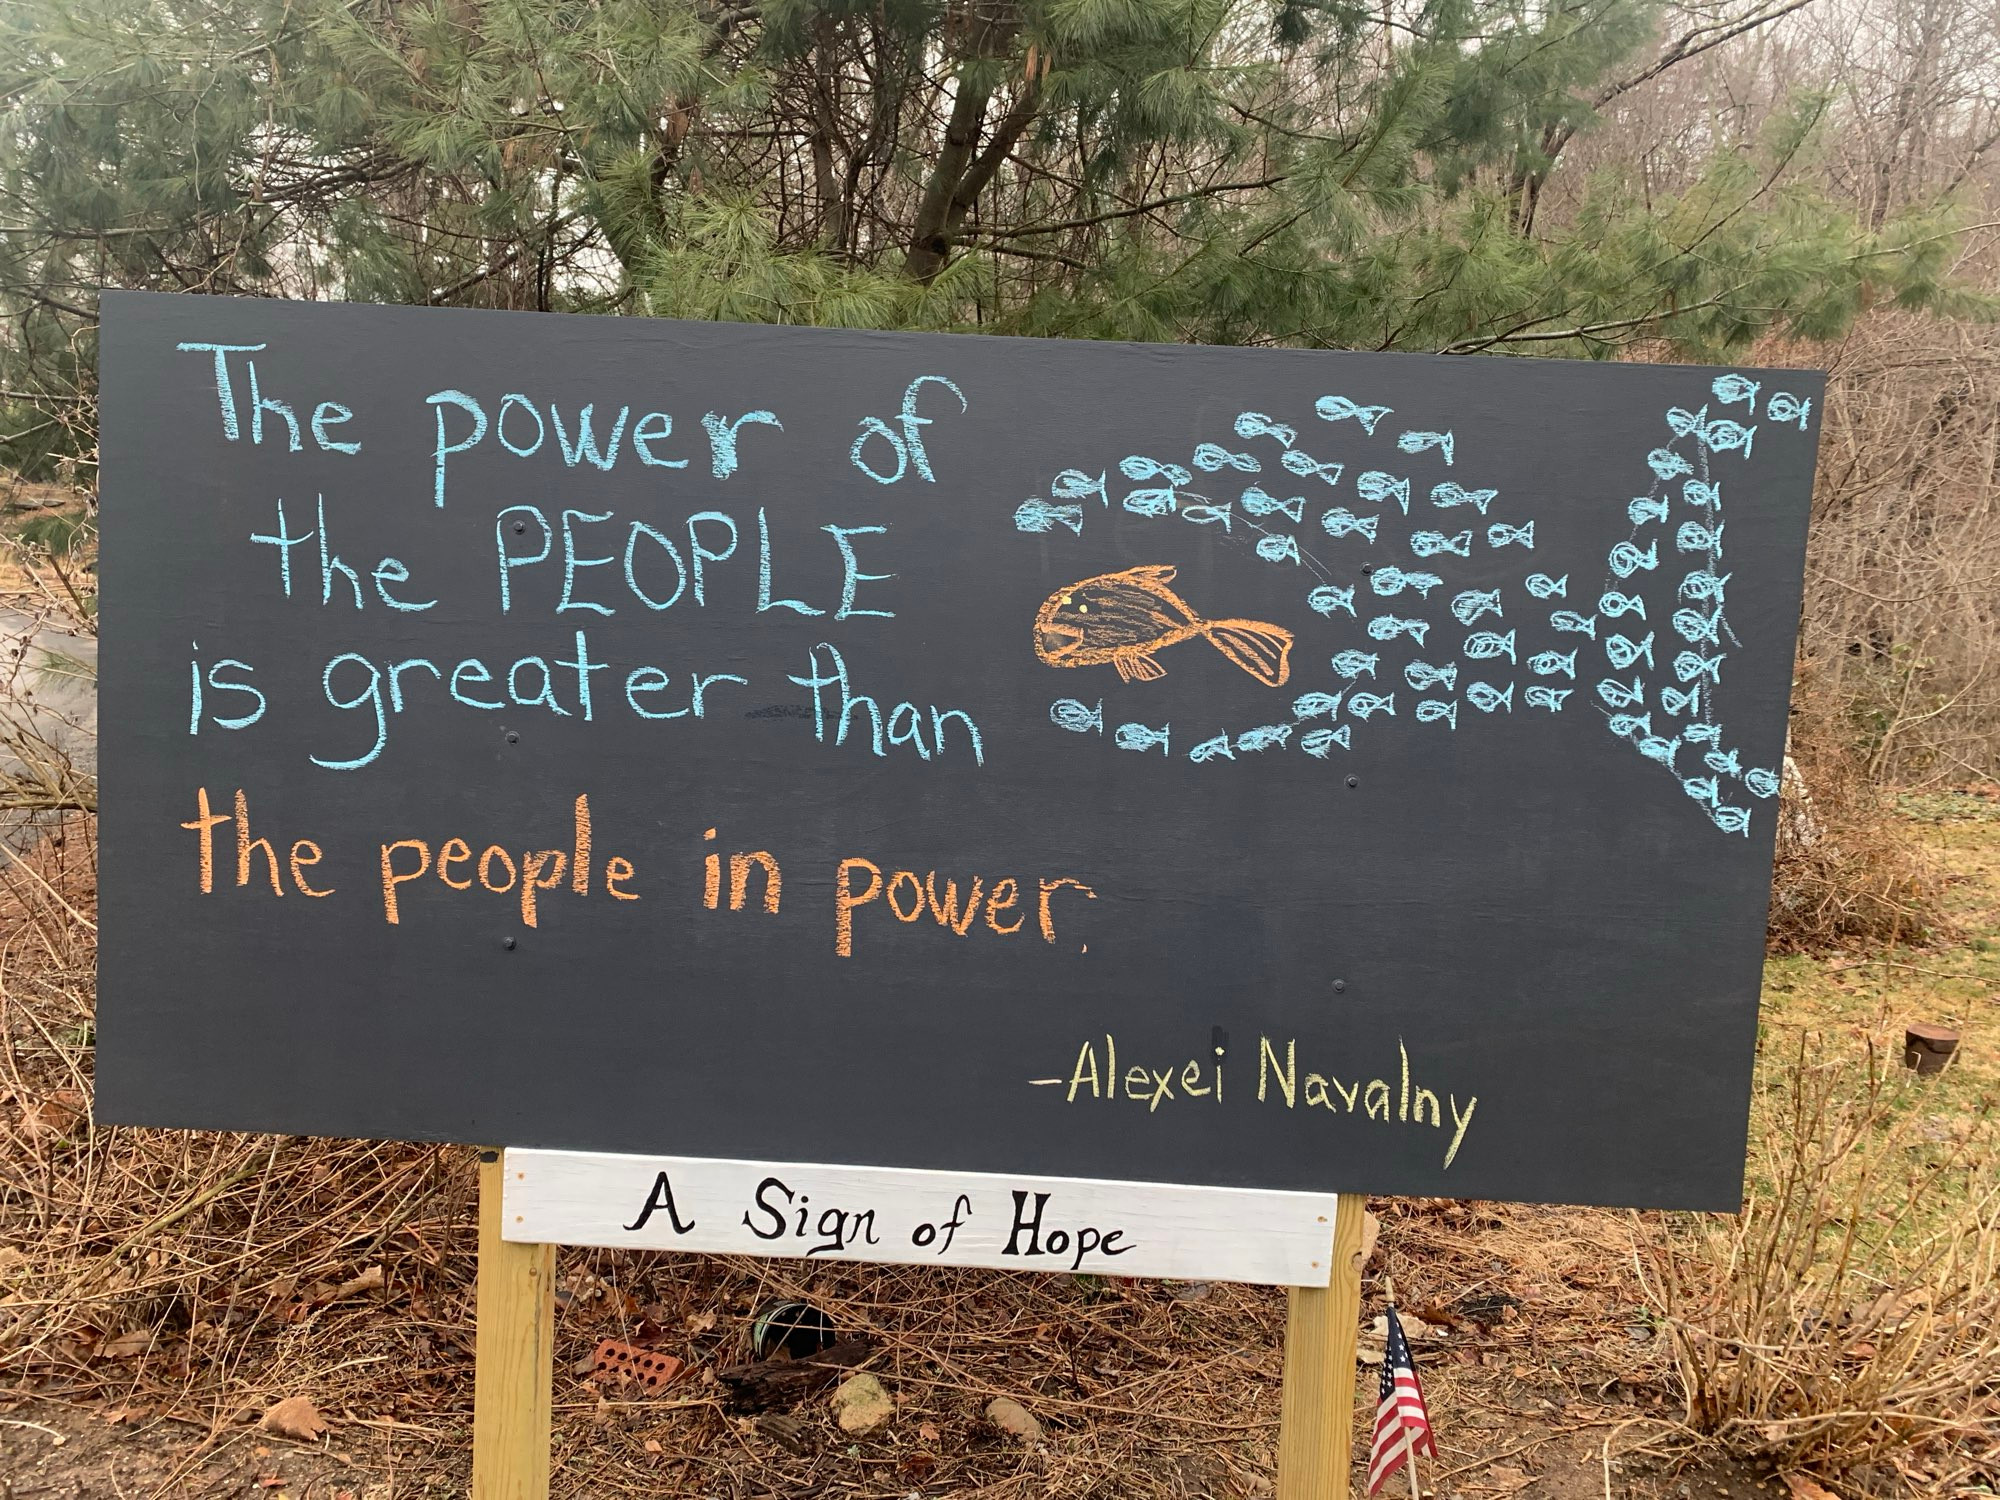 The power of
the PEOPLE
is greater than
the people in power.
-Alexei Navalny
A Sign of Hope